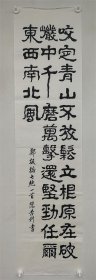 咬定青山不放鬆立根原在破
巖中千磨萬擊還堅勁任爾
東西南北風
鄭板橋七絶一首